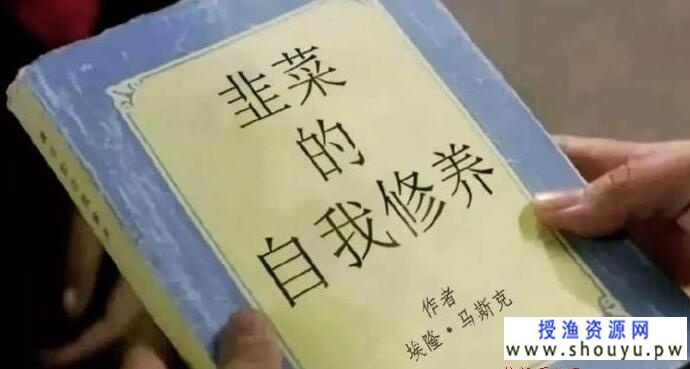 韭菜
的
自我修养
作者
埃隆·马斯克
授渔资源网
www.shouyu.pw